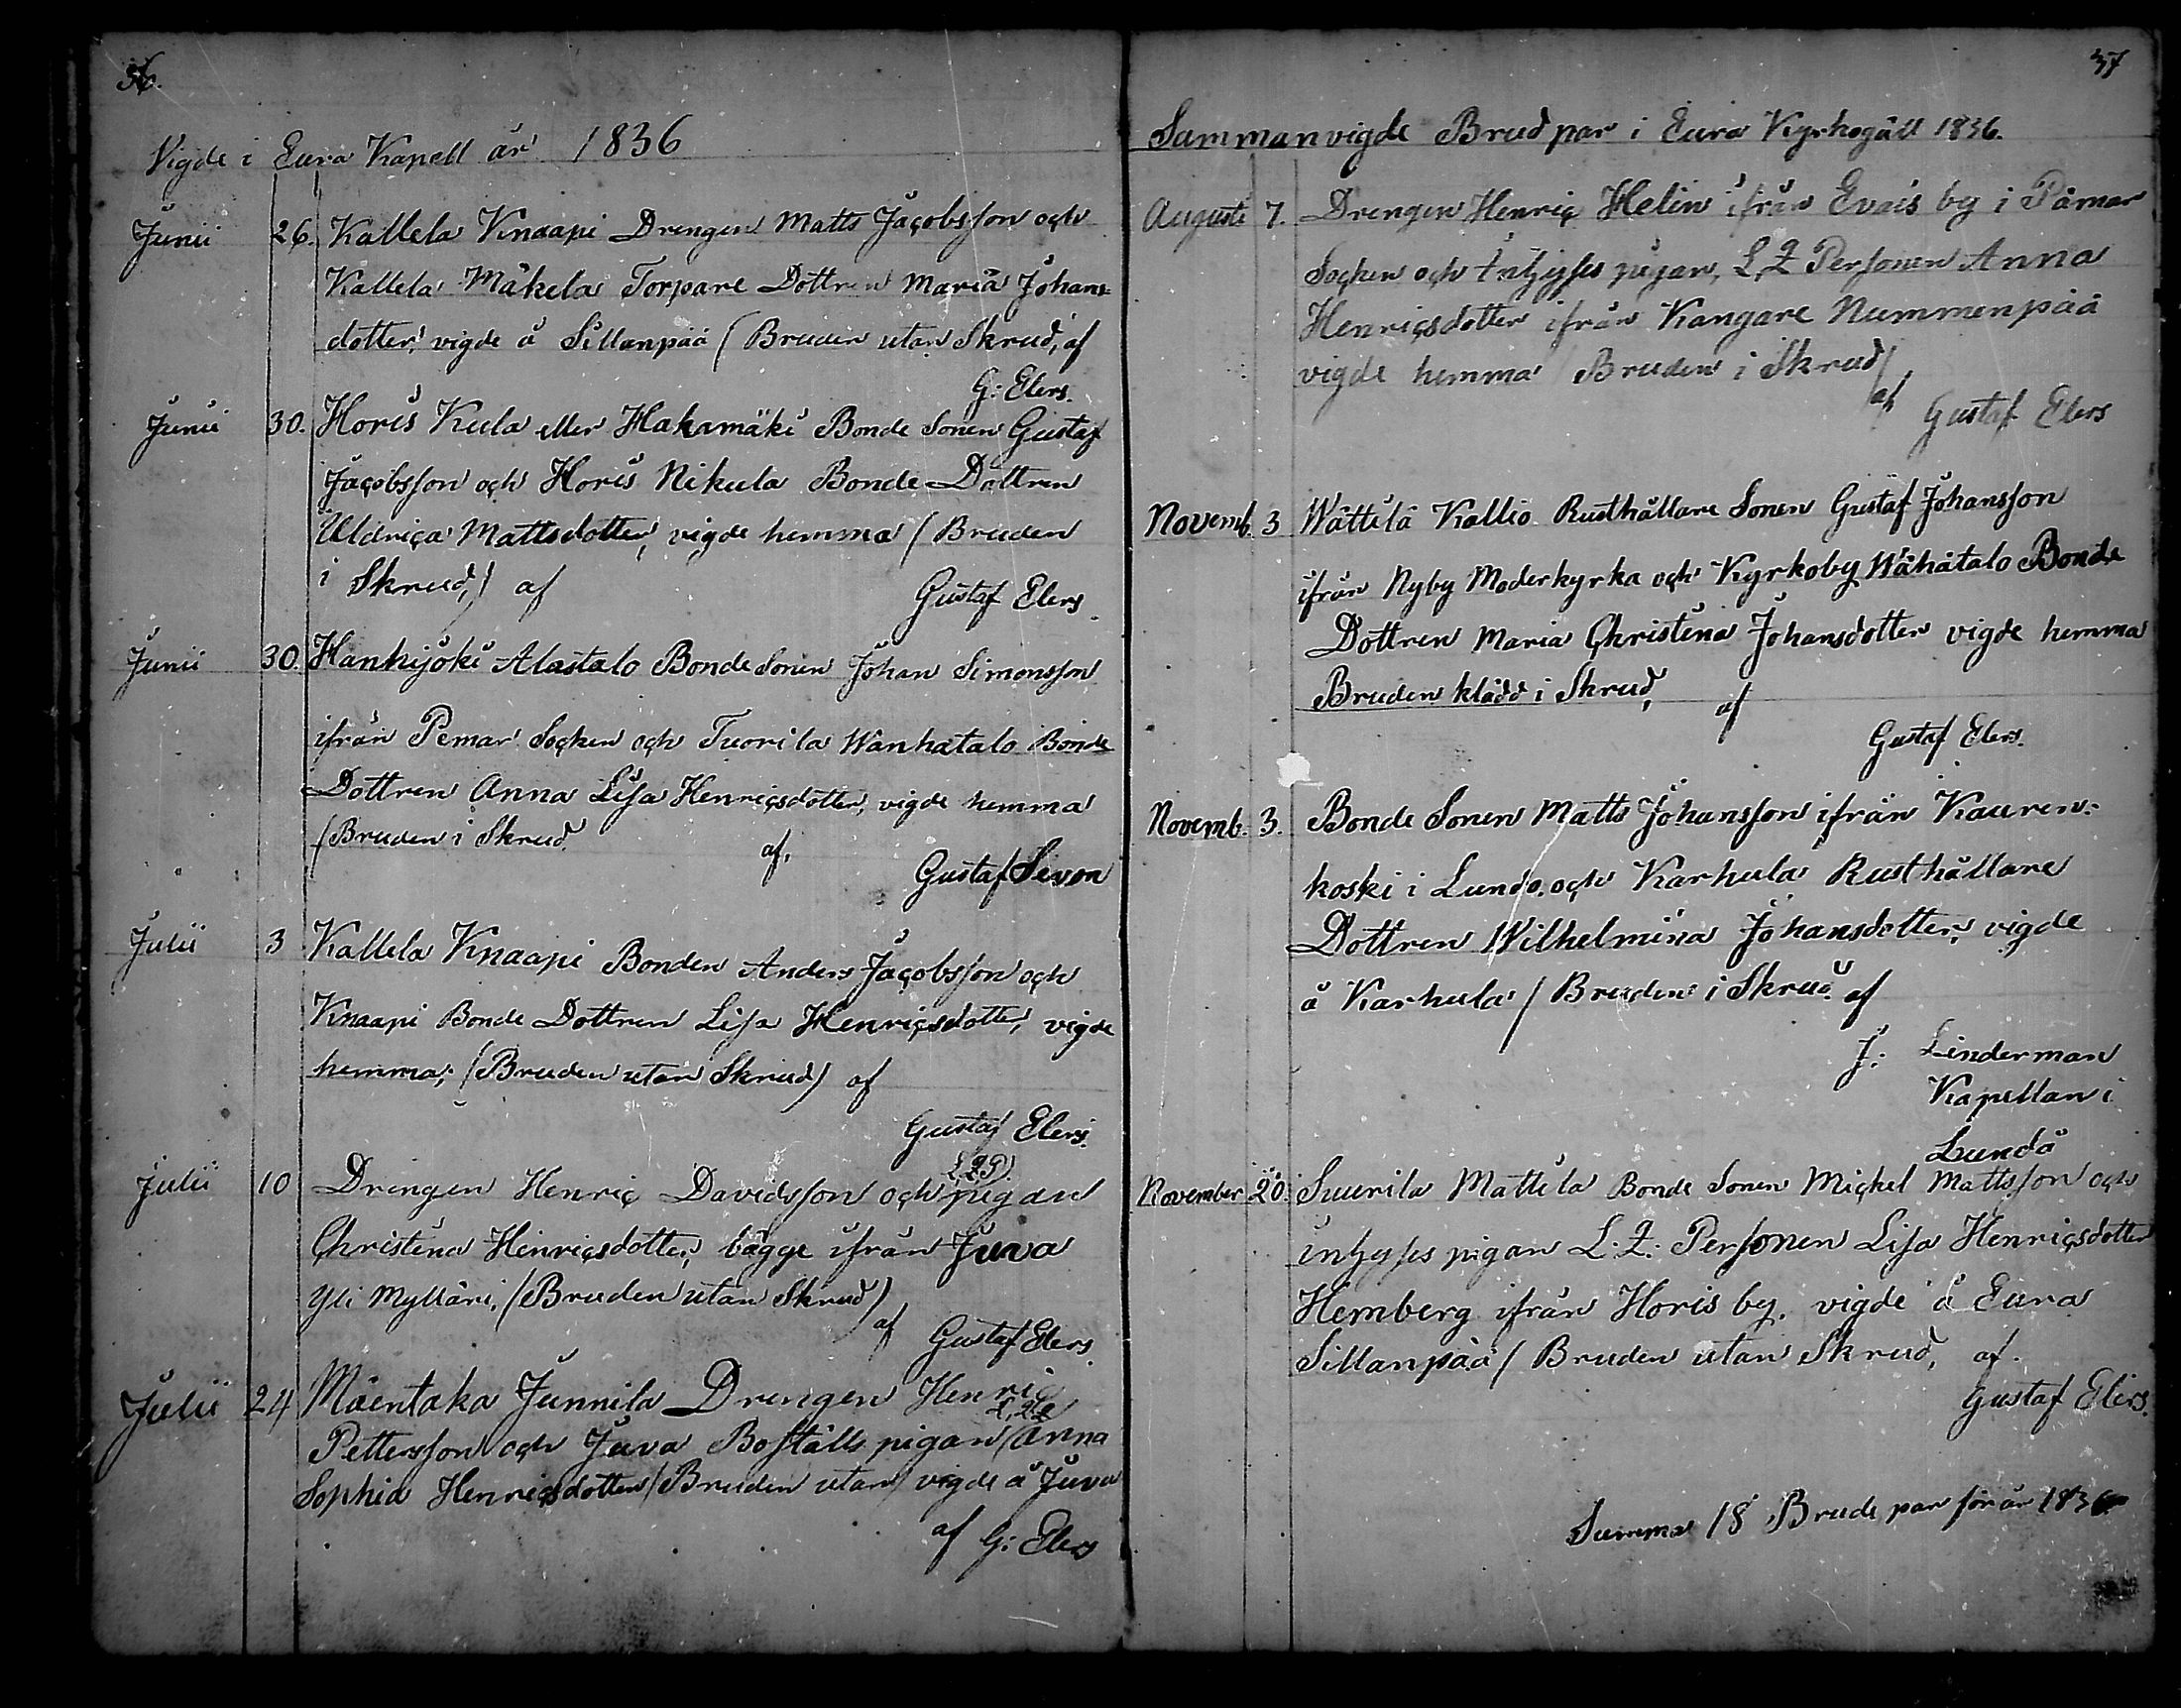 36.
Vigde i Eura Kapell år 1836
Junii 26. Kallela Knaapi Drengen Matts Jacobsson och
Kallela Mäkela Torpare Dottren Maria Johans-
dotter, vigde å Sillanpää (Bruden utan Skrud, af
G: Elers.
Junii 30. Horis Kula eller Hakamäki Bonde Sonen Gustaf
Jacobsson och Horis Nikula Bonde Dottren
Uldrica Mattsdotter, vigde hemma (Bruden
i Skrud,) af
Gustaf Elers
Junii 30. Hanhijoki Alastalo Bonde Sonen Johan Simonsson
ifrån Pemar Socken och Tuorila Wanhatalo Bonde
Dottren Anna Lisa Henricsdotter, vigde hemma
(Bruden i Skrud. af,
Gustaf Sevon
Julii 3 Kallela Knaapi Bonden Anders Jacobsson och
Knaapi Bonde Dottren Lisa Henricsdotter, vigde
hemma; (Bruden utan Skrud) af
Gustaf Elers.
Julii 10 Drengen Henric Davidsson och pigan
Christina Henricsdotter, bägge ifrån Juva
Yli Mylläri. (Bruden utan Skrud)
af Gustaf Elers
Julii 24 Mäentaka Junnila Drengen Henric
Pettersson och Juva Boställs pigan Anna
Sophia Henricsdotter (Bruden utan) vigde å Juva
af G: Elers
37
Sammanvigde Brudpar i Eura Kyrkogäll 1836.
Augusti 7. Drengen Henric Helin ifrån Evais by i Pämar
Socken och Inhyses pigan, L. Q Personen Anna
Henricsdotter ifrån Kangare Nummenpää
vigde hemma (Bruden i Skrud)
af Gustaf Elers
Novemb. 3 Wättilä Kallio Rusthållare Sonen Gustaf Johansson
ifrån Nyby Moderkyrka och Kyrkoby Wähätalo Bonde
Dottren Maria Christina Johansdotter vigde hemma
Bruden klädd i Skrud, af
Gustaf Elers.
Novemb. 3. Bonde Sonen Matts Johansson ifrån Kauren-
koski i Lundo, och Karhula Rusthållare
Dottren Wilhelmina Johansdotter, vigde
å Karhula (Bruden i Skrud. af
J: Linderman
Kapellan i
Lundo
November 20. Suurila Mattila Bonde Sonen Mickel Mattsson och
inhyses pigan L. Q. Personen Lisa Henricsdotter
Hemberg ifrån Horis by. vigde å Eura
Sillanpää (Bruden utan Skrud, af.
Gustaf Elers.
Summa 18 Brude par för år 1836